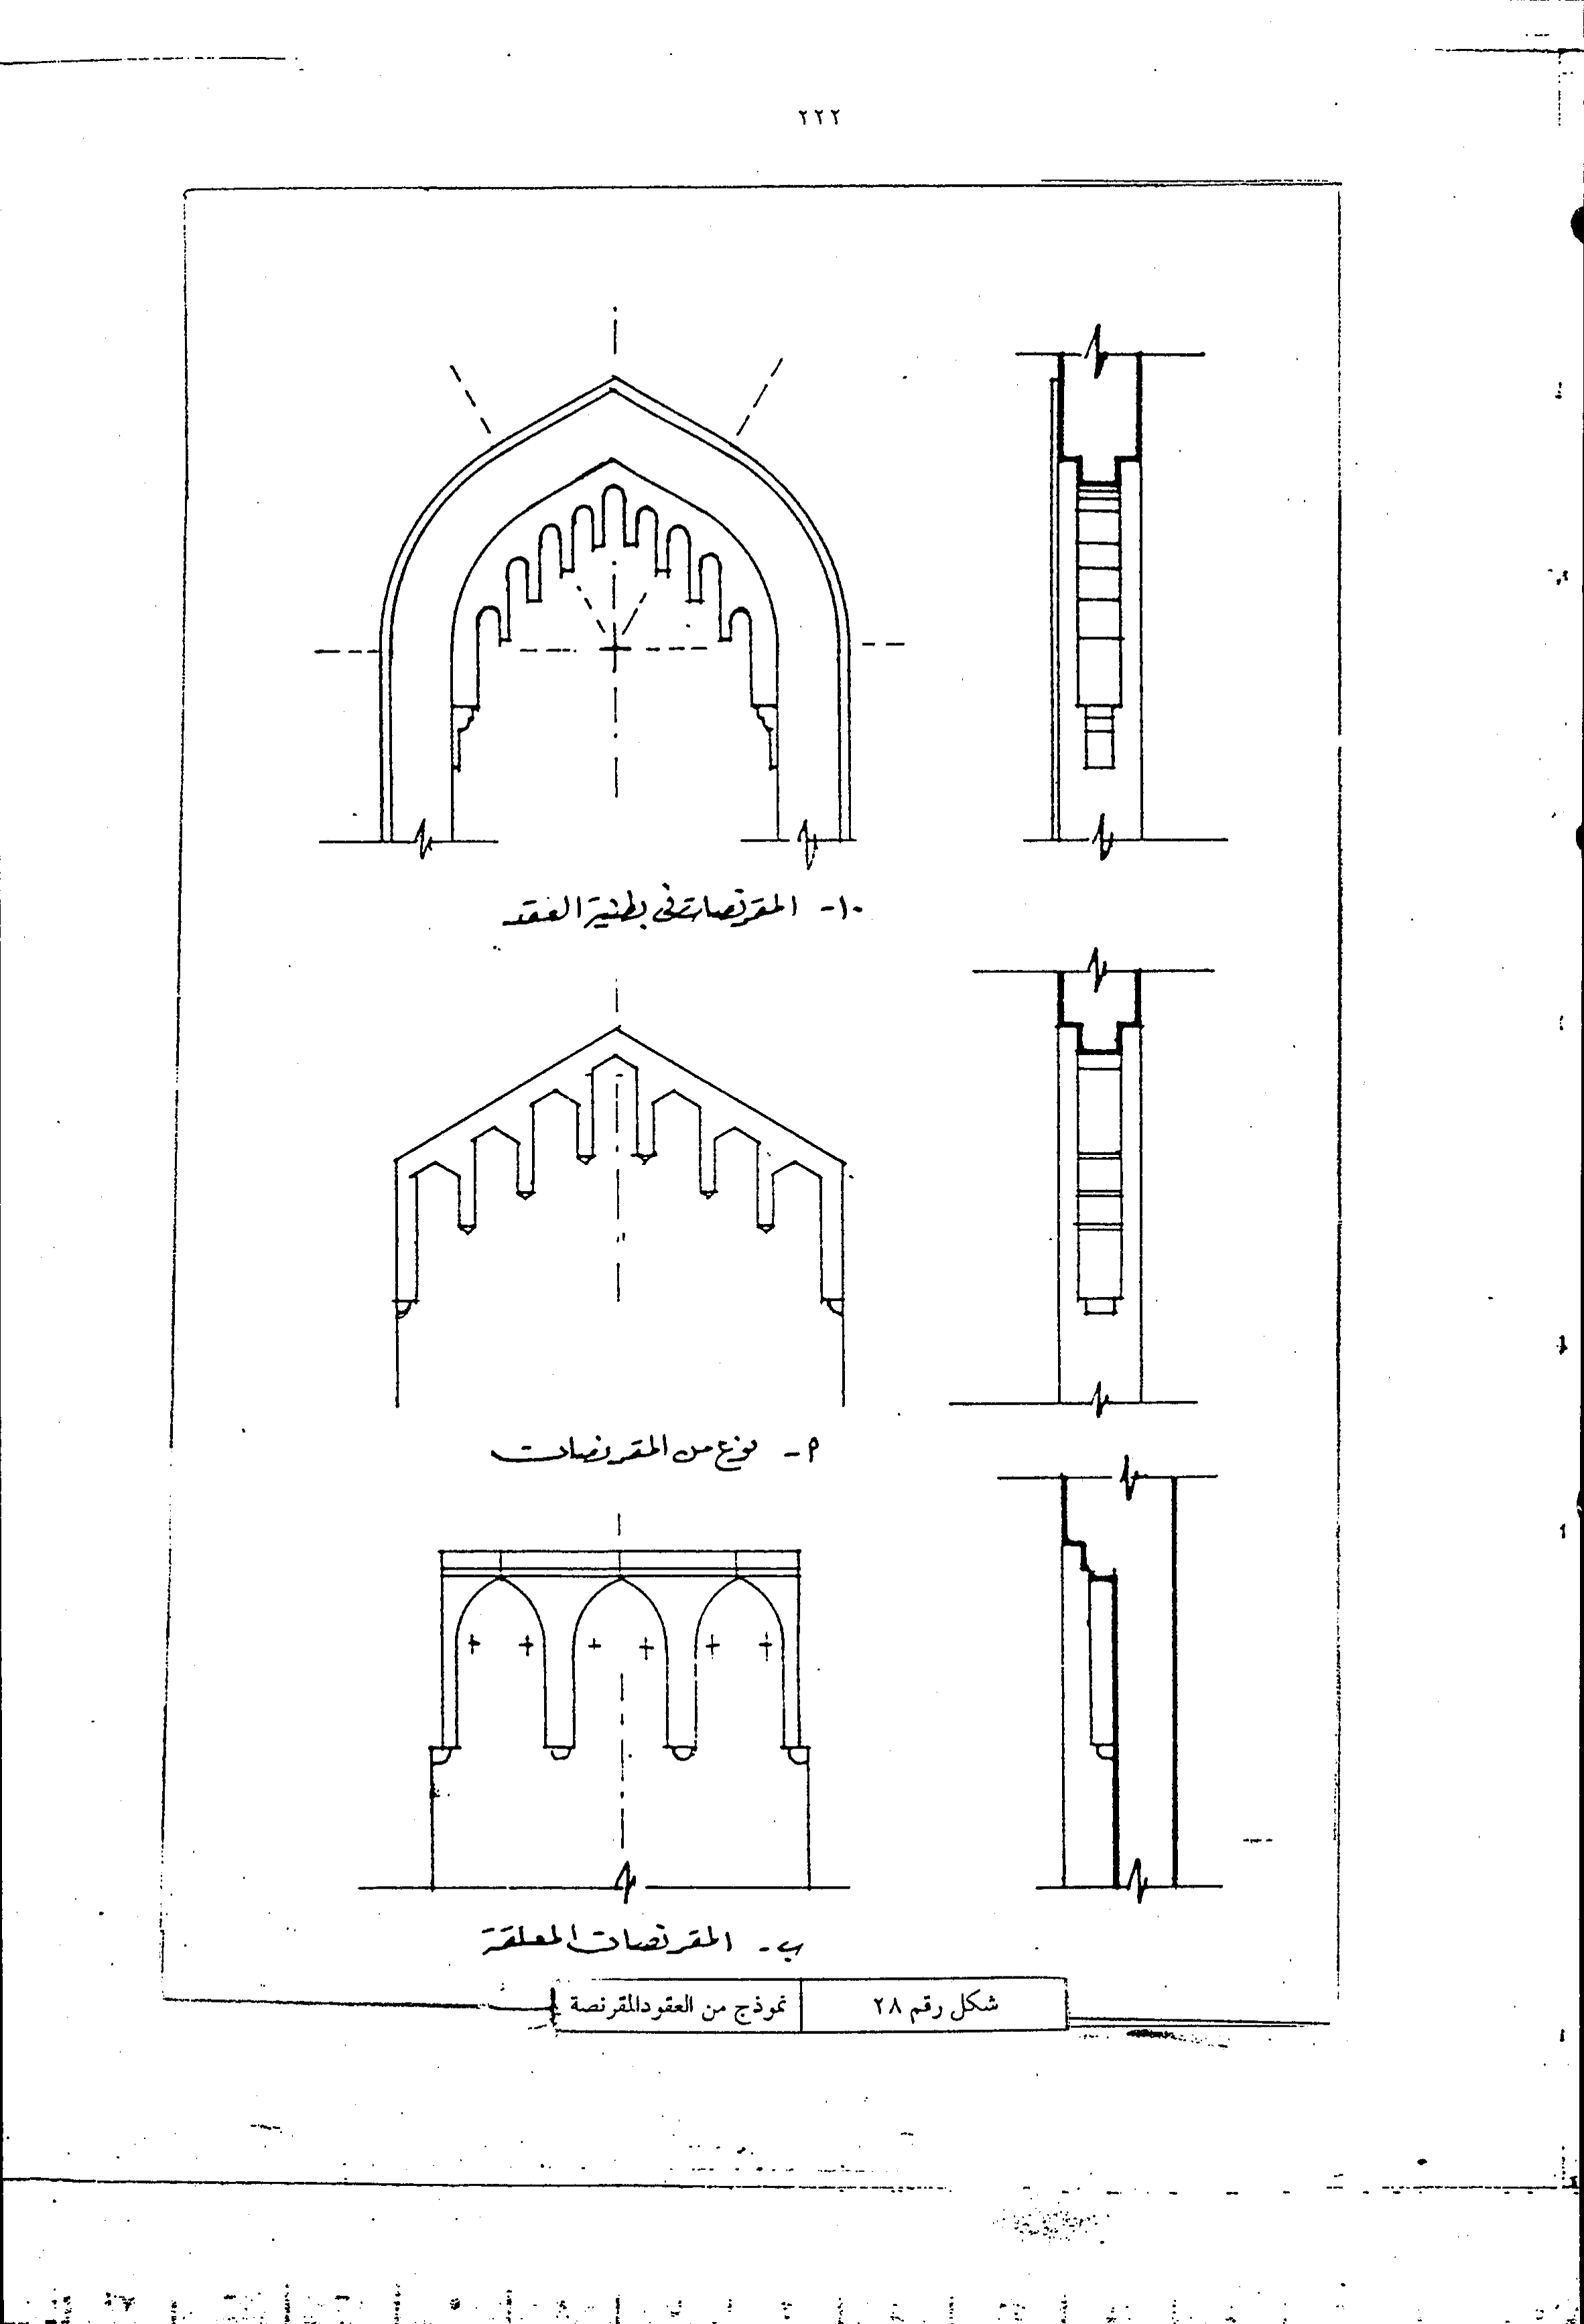 ٢٢٢
١٠- المقرنصات في بطنية العقد
م- نوع من المقرنصات
ب- المقرنصات المعلقة
شكل رقم ٢٨
نموذج من العقود المقرنصة